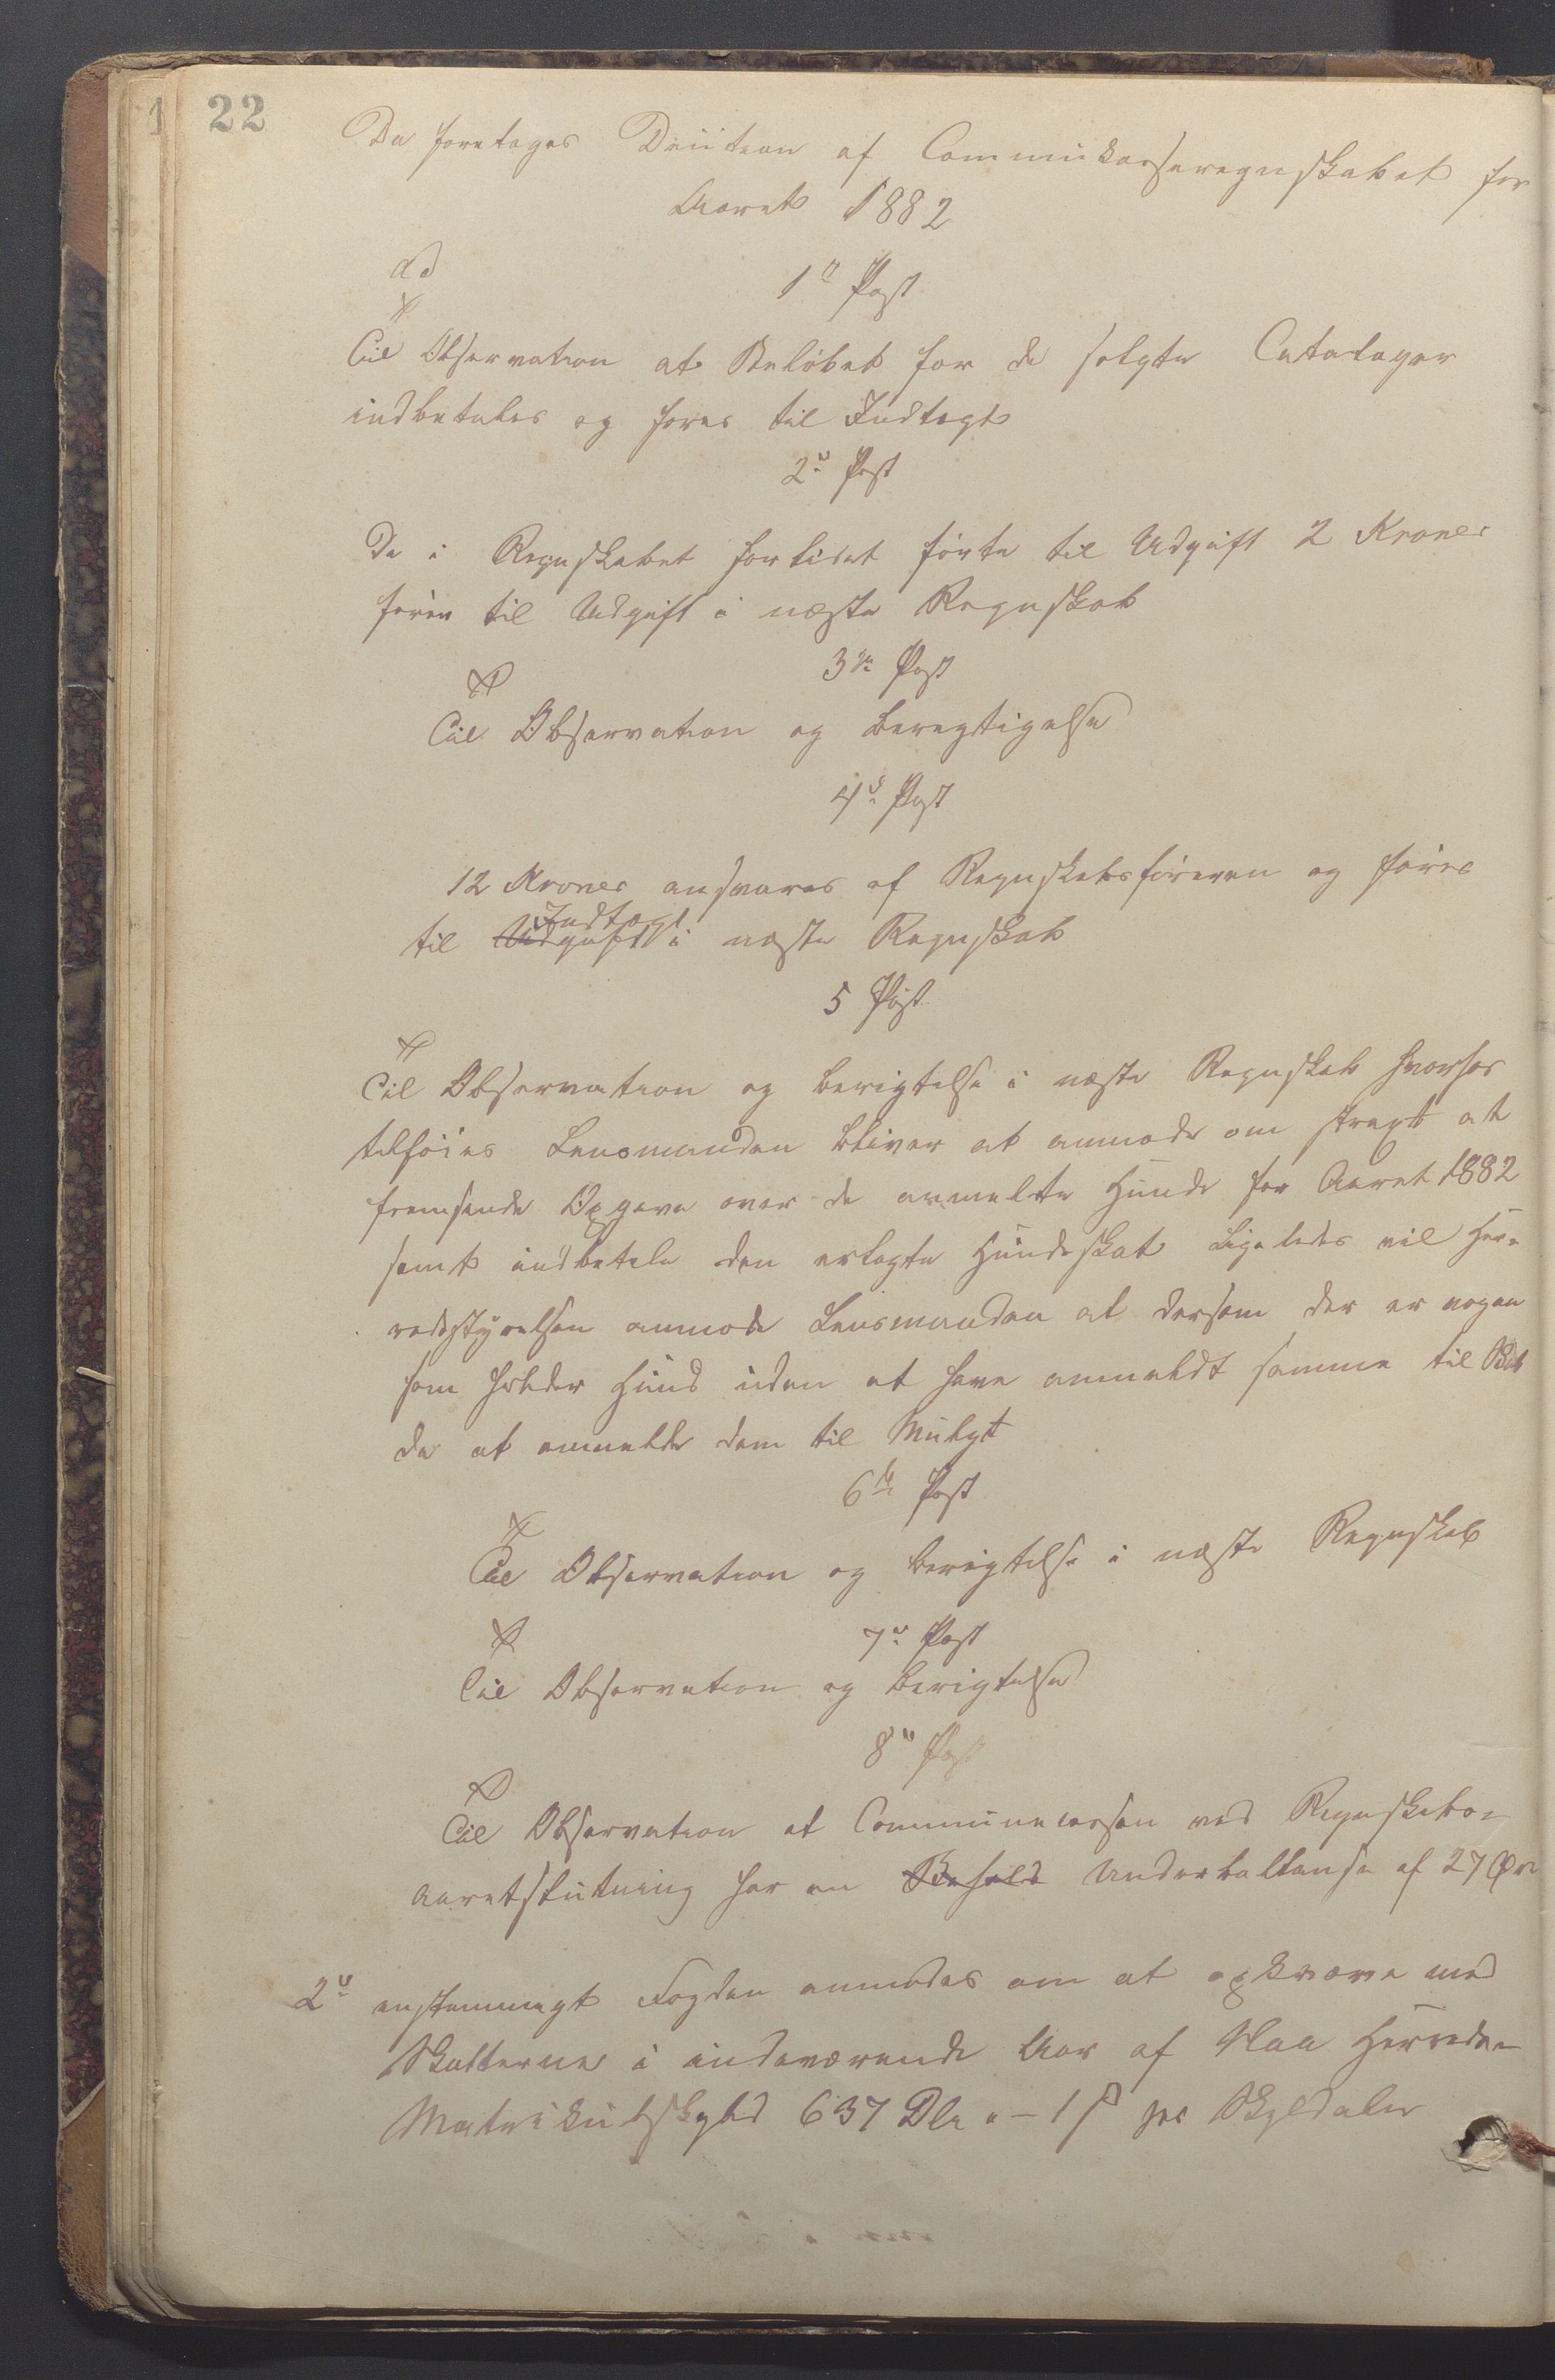 22
Da foretages Deiition af Commiikasseregnskabet for
Aaret 1882
ad
1ste Post
Til Observation at Beløbet for de solgte Cataloger
indbetales og føres til Indtægt
2den Post
De i Regnskabet forlidet førte til Udgift 2 Kroner
føres til Udgift i næste Regnskab
3die Post
Til Observation og Beregtigelse
4de Post
12 Kroner ansvares af Regnskabsføreren og føres
til Udgift Indtægt i næste Regnskab
5 Post
Til Observation og berigtelse i næste Regnskab hvorhos
tilføies Lensmanden bliver at anmode om stragt at
fremsende Opgave over de anmeldte Hunde for Aaret 1882
samt indbetale den erlagte Hundeskat Ligeledes vil Her=
redsstyrelsen anmode Lensmanden at dersom der er nogen
som holder Hund uden at have anmeldt samme til
da at anmelde dem til Mulgt
6te Post
Til Observation og berigtelse i næste Regnskab
7de Post
Til Observation og berigtelse
8de Post
Til Observation at Communecassen ved Regnskabs=
aaretslutning har en Behold Underballanse af 27 Øre
2de enstemmigt Fogden anmodes om at opkræve med
Skatterne i indeværende Aar af Haa Herreds
Matrikulskyld 637 Dlr " – 1 ß pr Skyldaler